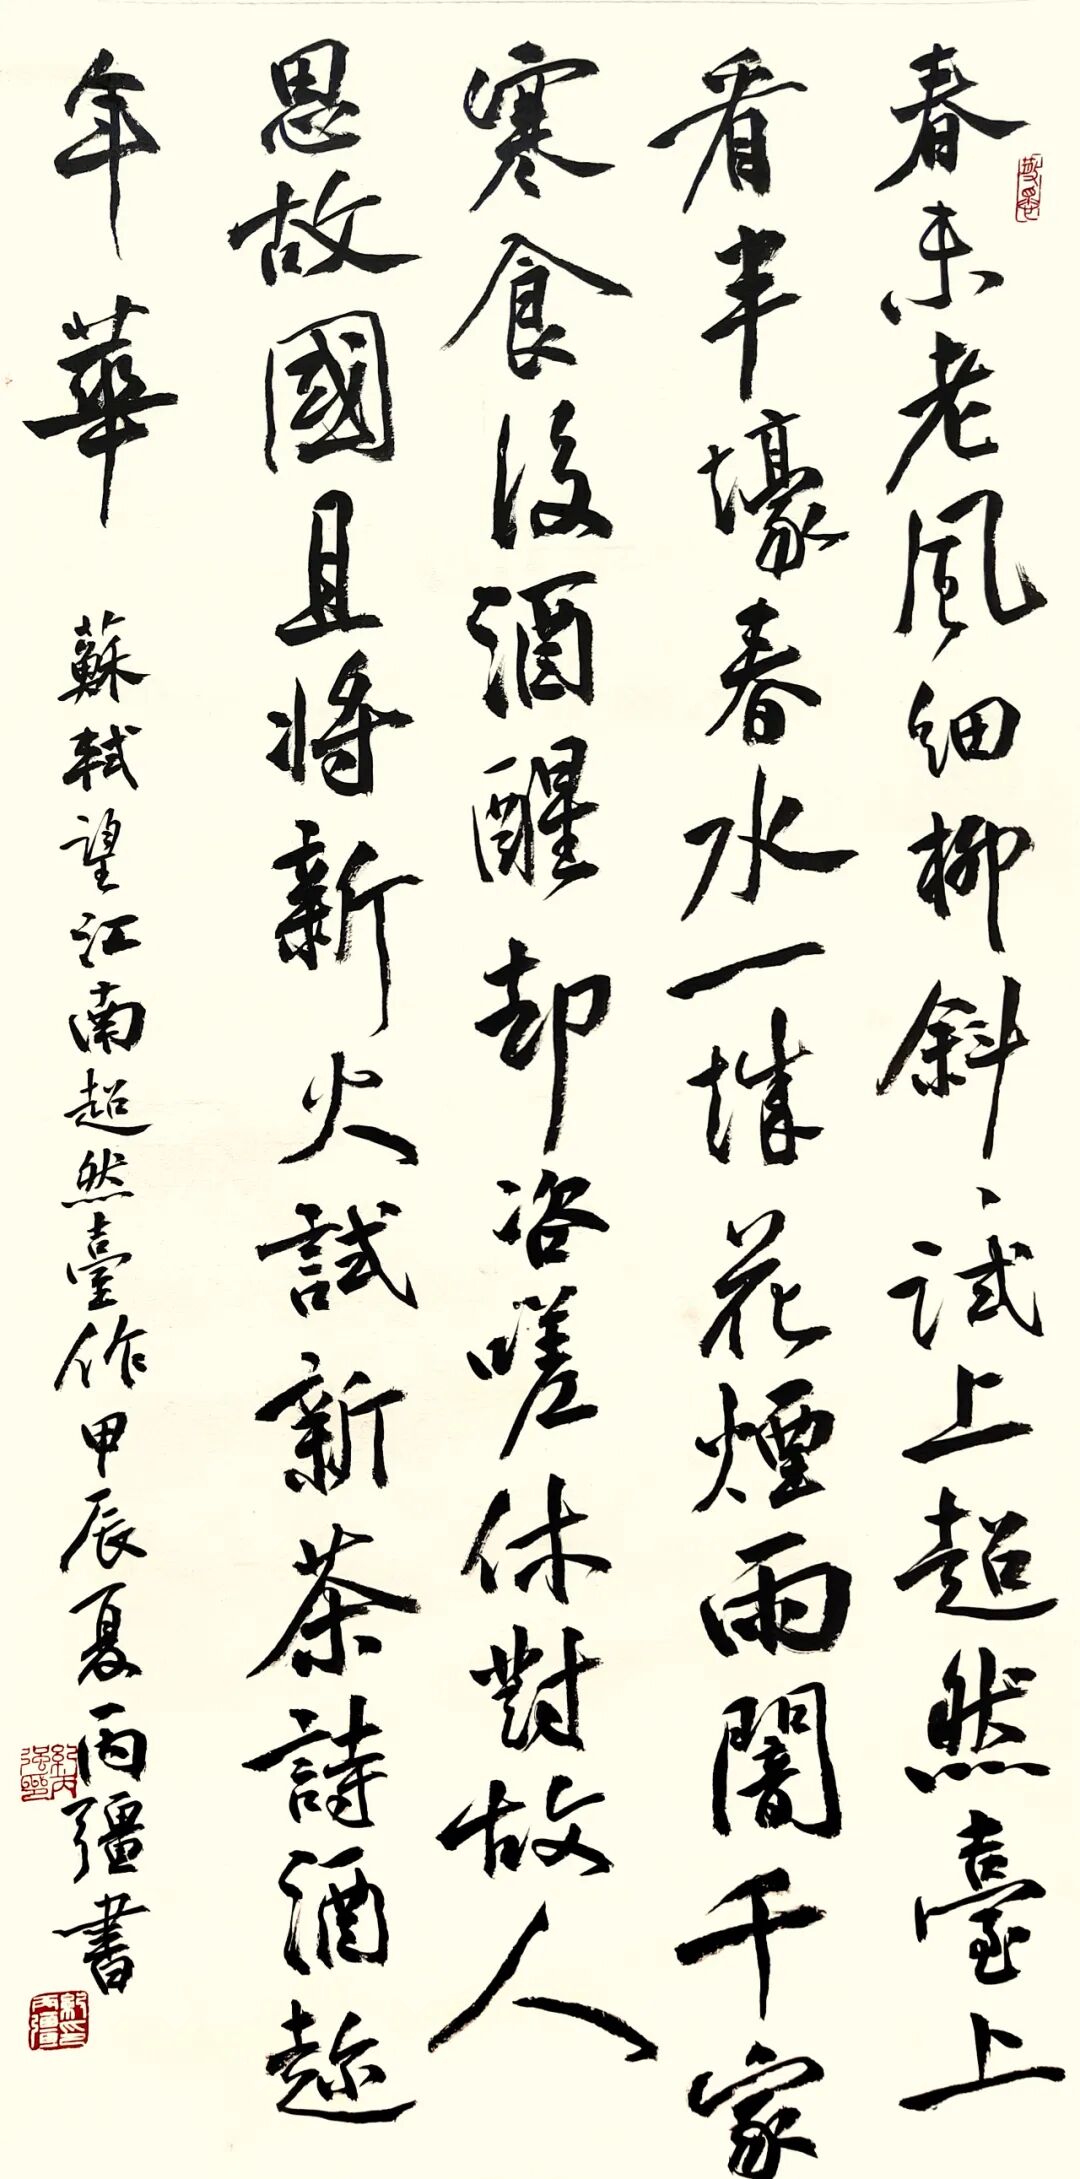 春未老風細柳斜試上超然臺上
看半壕春水一城花煙雨闇千家
寒食後酒醒却咨嗟休對故人
思故國且將新火試新茶詩酒趂
年華
蘇軾望江南超然臺作甲辰夏丙彊書